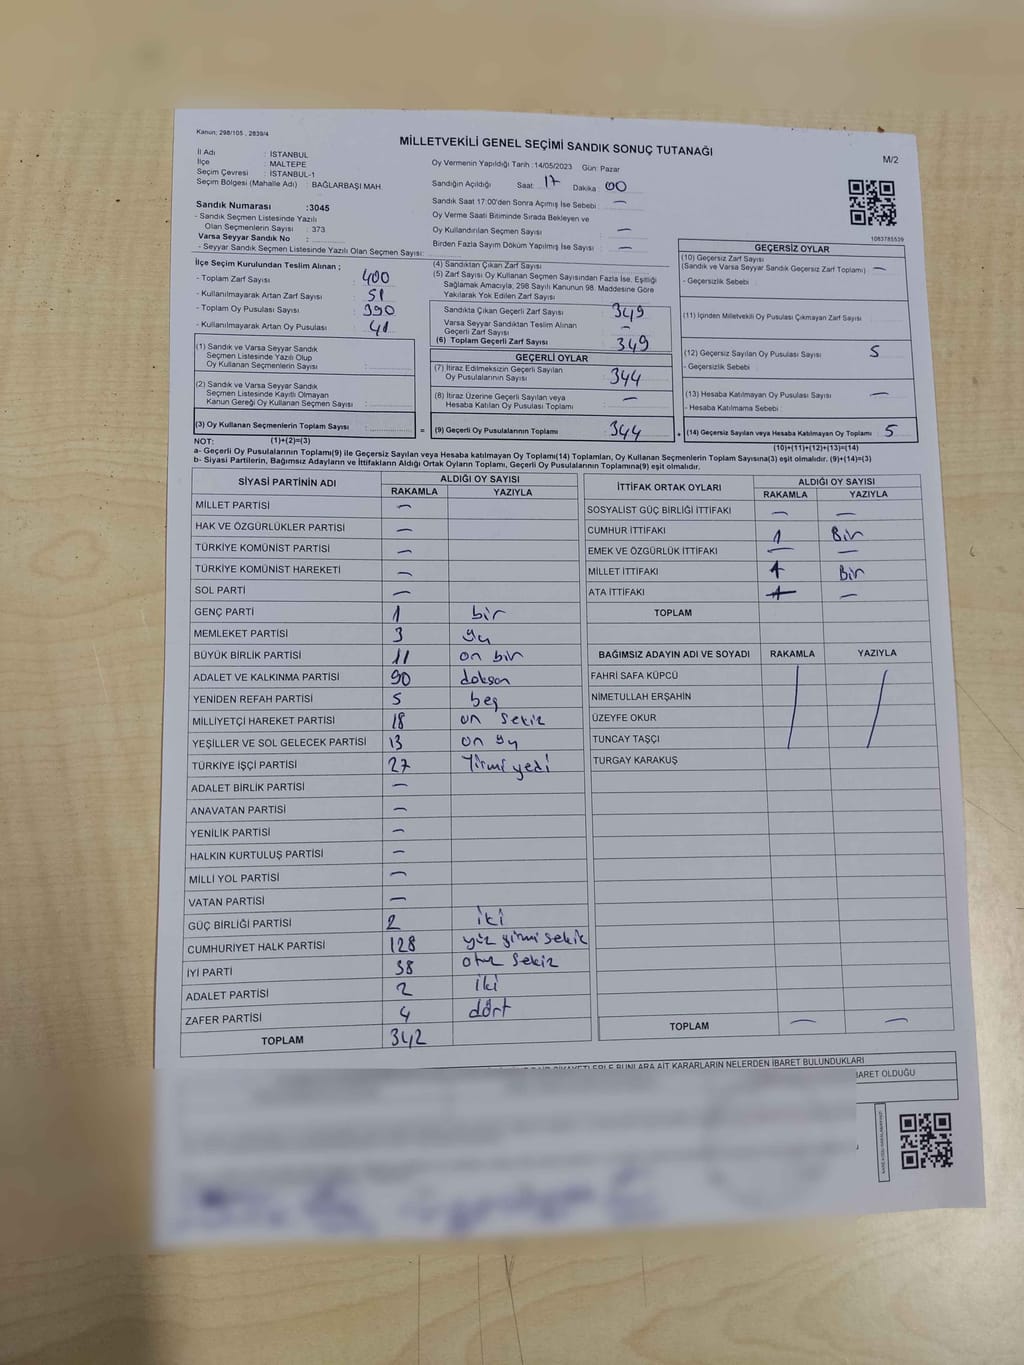 Kanun: 298/105 , 2839/4
MİLLETVEKİLİ GENEL SEÇİMİ SANDIK SONUÇ TUTANAĞI
M/2
İl Adı : İSTANBUL
İlçe : MALTEPE
Seçim Çevresi : İSTANBUL-1
Seçim Bölgesi (Mahalle Adı) : BAĞLARBAŞI MAH.
Oy Vermenin Yapıldığı Tarih :14/05/2023 Gün: Pazar
Sandığın Açıldığı Saat: 17 Dakika: 00
Sandık Saat 17:00'den Sonra Açımış İse Sebebi : —
Oy Verme Saati Bitiminde Sırada Bekleyen ve
Oy Kullandırılan Seçmen Sayısı : —
Birden Fazla Sayım Döküm Yapılmış İse Sayısı : —
1083785539
Sandık Numarası :3045
- Sandık Seçmen Listesinde Yazılı
Olan Seçmenlerin Sayısı : 373
Varsa Seyyar Sandık No :
- Seyyar Sandık Seçmen Listesinde Yazılı Olan Seçmen Sayısı:
İlçe Seçim Kurulundan Teslim Alınan ;
- Toplam Zarf Sayısı : 400
- Kullanılmayarak Artan Zarf Sayısı : 51
- Toplam Oy Pusulası Sayısı : 390
- Kullanılmayarak Artan Oy Pusulası : 41
(1) Sandık ve Varsa Seyyar Sandık
Seçmen Listesinde Yazılı Olup
Oy Kullanan Seçmenlerin Sayısı :
(2) Sandık ve Varsa Seyyar Sandık
Seçmen Listesinde Kayıtlı Olmayan
Kanun Gereği Oy Kullanan Seçmen Sayısı :
(3) Oy Kullanan Seçmenlerin Toplam Sayısı :
(4) Sandıktan Çıkan Zarf Sayısı
(5) Zarf Sayısı Oy Kullanan Seçmen Sayısından Fazla İse, Eşitliği
Sağlamak Amacıyla; 298 Sayılı Kanunun 98. Maddesine Göre
Yakılarak Yok Edilen Zarf Sayısı
Sandıkta Çıkan Geçerli Zarf Sayısı : 349
Varsa Seyyar Sandıktan Teslim Alınan
Geçerli Zarf Sayısı : —
(6) Toplam Geçerli Zarf Sayısı : 349
GEÇERLİ OYLAR
(7) İtiraz Edilmeksizin Geçerli Sayılan
Oy Pusulalarının Sayısı : 344
(8) İtiraz Üzerine Geçerli Sayılan veya
Hesaba Katılan Oy Pusulası Toplamı : —
= (9) Geçerli Oy Pusulalarının Toplamı : 344
GEÇERSİZ OYLAR
(10) Geçersiz Zarf Sayısı
(Sandık ve Varsa Seyyar Sandık Geçersiz Zarf Toplamı) : —
- Geçersizlik Sebebi :
(11) İçinden Milletvekili Oy Pusulası Çıkmayan Zarf Sayısı :
(12) Geçersiz Sayılan Oy Pusulası Sayısı : 5
- Geçersizlik Sebebi :
(13) Hesaba Katılmayan Oy Pusulası Sayısı : —
- Hesaba Katılmama Sebebi :
+ (14) Geçersiz Sayılan veya Hesaba Katılmayan Oy Toplamı : 5
NOT: (1)+(2)=(3)
(10)+(11)+(12)+(13)=(14)
a- Geçerli Oy Pusulalarının Toplamı(9) ile Geçersiz Sayılan veya Hesaba katılmayan Oy Toplamı(14) Toplamları, Oy Kullanan Seçmenlerin Toplam Sayısına(3) eşit olmalıdır. (9)+(14)=(3)
b- Siyasi Partilerin, Bağımsız Adayların ve İttifakların Aldığı Ortak Oyların Toplamı, Geçerli Oy Pusulalarının Toplamına(9) eşit olmalıdır.
SİYASİ PARTİNİN ADI ALDIĞI OY SAYISI
RAKAMLA YAZIYLA
MİLLET PARTİSİ —
HAK VE ÖZGÜRLÜKLER PARTİSİ —
TÜRKİYE KOMÜNİST PARTİSİ —
TÜRKİYE KOMÜNİST HAREKETİ —
SOL PARTİ —
GENÇ PARTİ 1 bir
MEMLEKET PARTİSİ 3 üç
BÜYÜK BİRLİK PARTİSİ 11 on bir
ADALET VE KALKINMA PARTİSİ 90 doksan
YENİDEN REFAH PARTİSİ 5 beş
MİLLİYETÇİ HAREKET PARTİSİ 18 on sekiz
YEŞİLLER VE SOL GELECEK PARTİSİ 13 on üç
TÜRKİYE İŞÇİ PARTİSİ 27 Yirmi yedi
ADALET BİRLİK PARTİSİ —
ANAVATAN PARTİSİ —
YENİLİK PARTİSİ —
HALKIN KURTULUŞ PARTİSİ —
MİLLİ YOL PARTİSİ —
VATAN PARTİSİ —
GÜÇ BİRLİĞİ PARTİSİ 2 iki
CUMHURİYET HALK PARTİSİ 128 yüz yirmi sekiz
İYİ PARTİ 38 otuz sekiz
ADALET PARTİSİ 2 iki
ZAFER PARTİSİ 4 dört
TOPLAM 342
İTTİFAK ORTAK OYLARI ALDIĞI OY SAYISI
RAKAMLA YAZIYLA
SOSYALİST GÜÇ BİRLİĞİ İTTİFAKI — —
CUMHUR İTTİFAKI 1 Bir
EMEK VE ÖZGÜRLÜK İTTİFAKI — —
MİLLET İTTİFAKI 1 Bir
ATA İTTİFAKI — —
TOPLAM
BAĞIMSIZ ADAYIN ADI VE SOYADI RAKAMLA YAZIYLA
FAHRİ SAFA KÜPCÜ
NİMETULLAH ERŞAHİN
ÜZEYFE OKUR
TUNCAY TAŞÇI
TURGAY KARAKUŞ
TOPLAM — —
BUNLARA AİT KARARLARIN NELERDEN İBARET BULUNDUKLARI
OLDUĞU